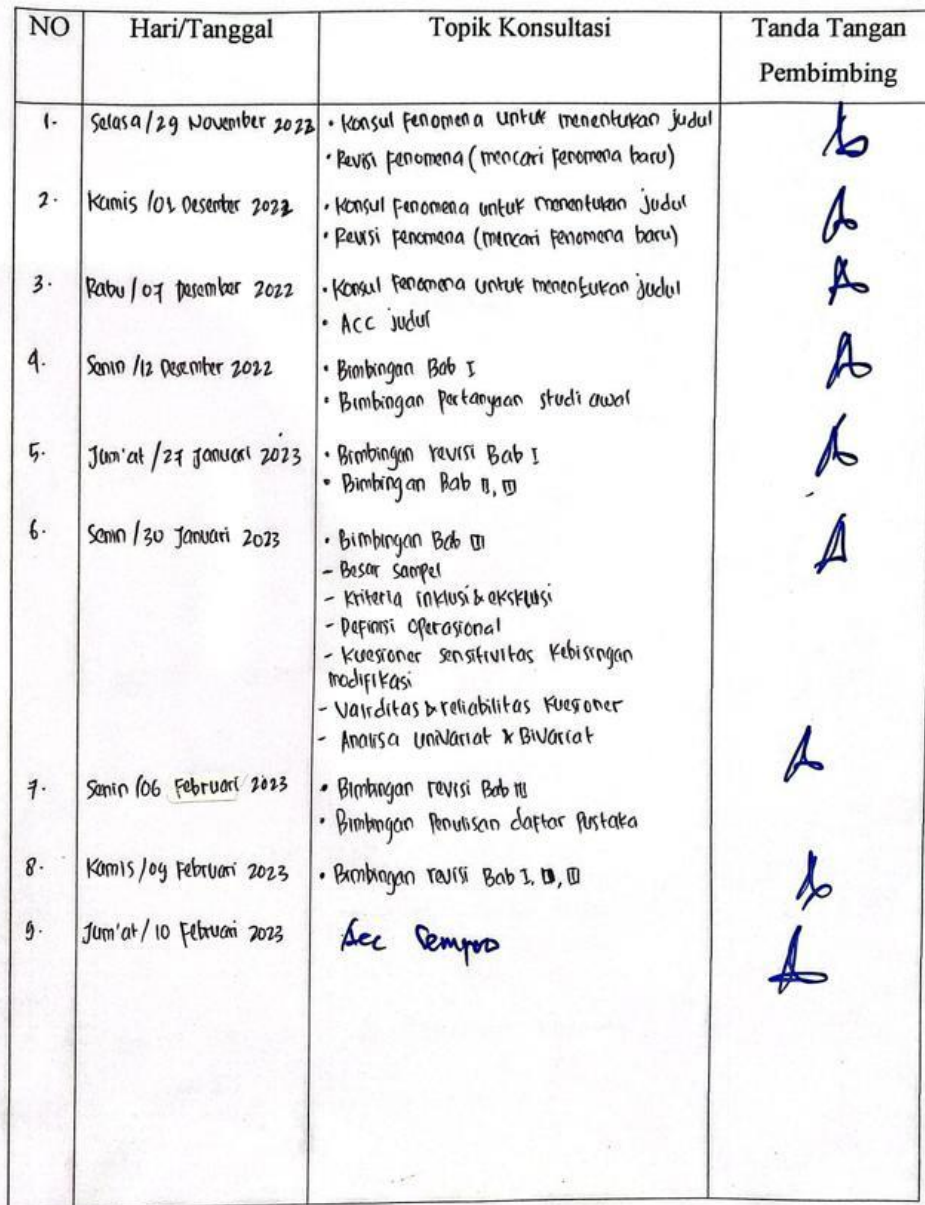 NO Hari/Tanggal Topik Konsultasi Tanda Tangan
Pembimbing
1. Selasa/29 November 2022 • Konsul fenomena untuk menentukan judul
• Revisi fenomena (mencari fenomena baru)
2. Kamis /01 Desember 2022 • Konsul fenomena untuk menentukan judul
• Revisi fenomena (mencari fenomena baru)
3. Rabu / 07 Desember 2022 • Konsul fenomena untuk menentukan judul
• ACC judul
4. Senin /12 Desember 2022 • Bimbingan Bab I
• Bimbingan pertanyaan studi awal
5. Jum'at /27 Januari 2023 • Bimbingan revisi Bab I
• Bimbingan Bab II, III
6. Senin /30 Januari 2023 • Bimbingan Bab III
- Besar sampel
- Kriteria inklusi & eksklusi
- Definisi Operasional
- Kuesioner sensitivitas Kebisingan
modifikasi
- Validitas & reliabilitas Kuesioner
- Analisa univariat & Bivariat
7. Senin /06 Februari 2023 • Bimbingan revisi Bab III
• Bimbingan Penulisan daftar Pustaka
8. Kamis /09 Februari 2023 • Bimbingan revisi Bab I, II, III
9. Jum'at / 10 Februari 2023 Acc Sempro